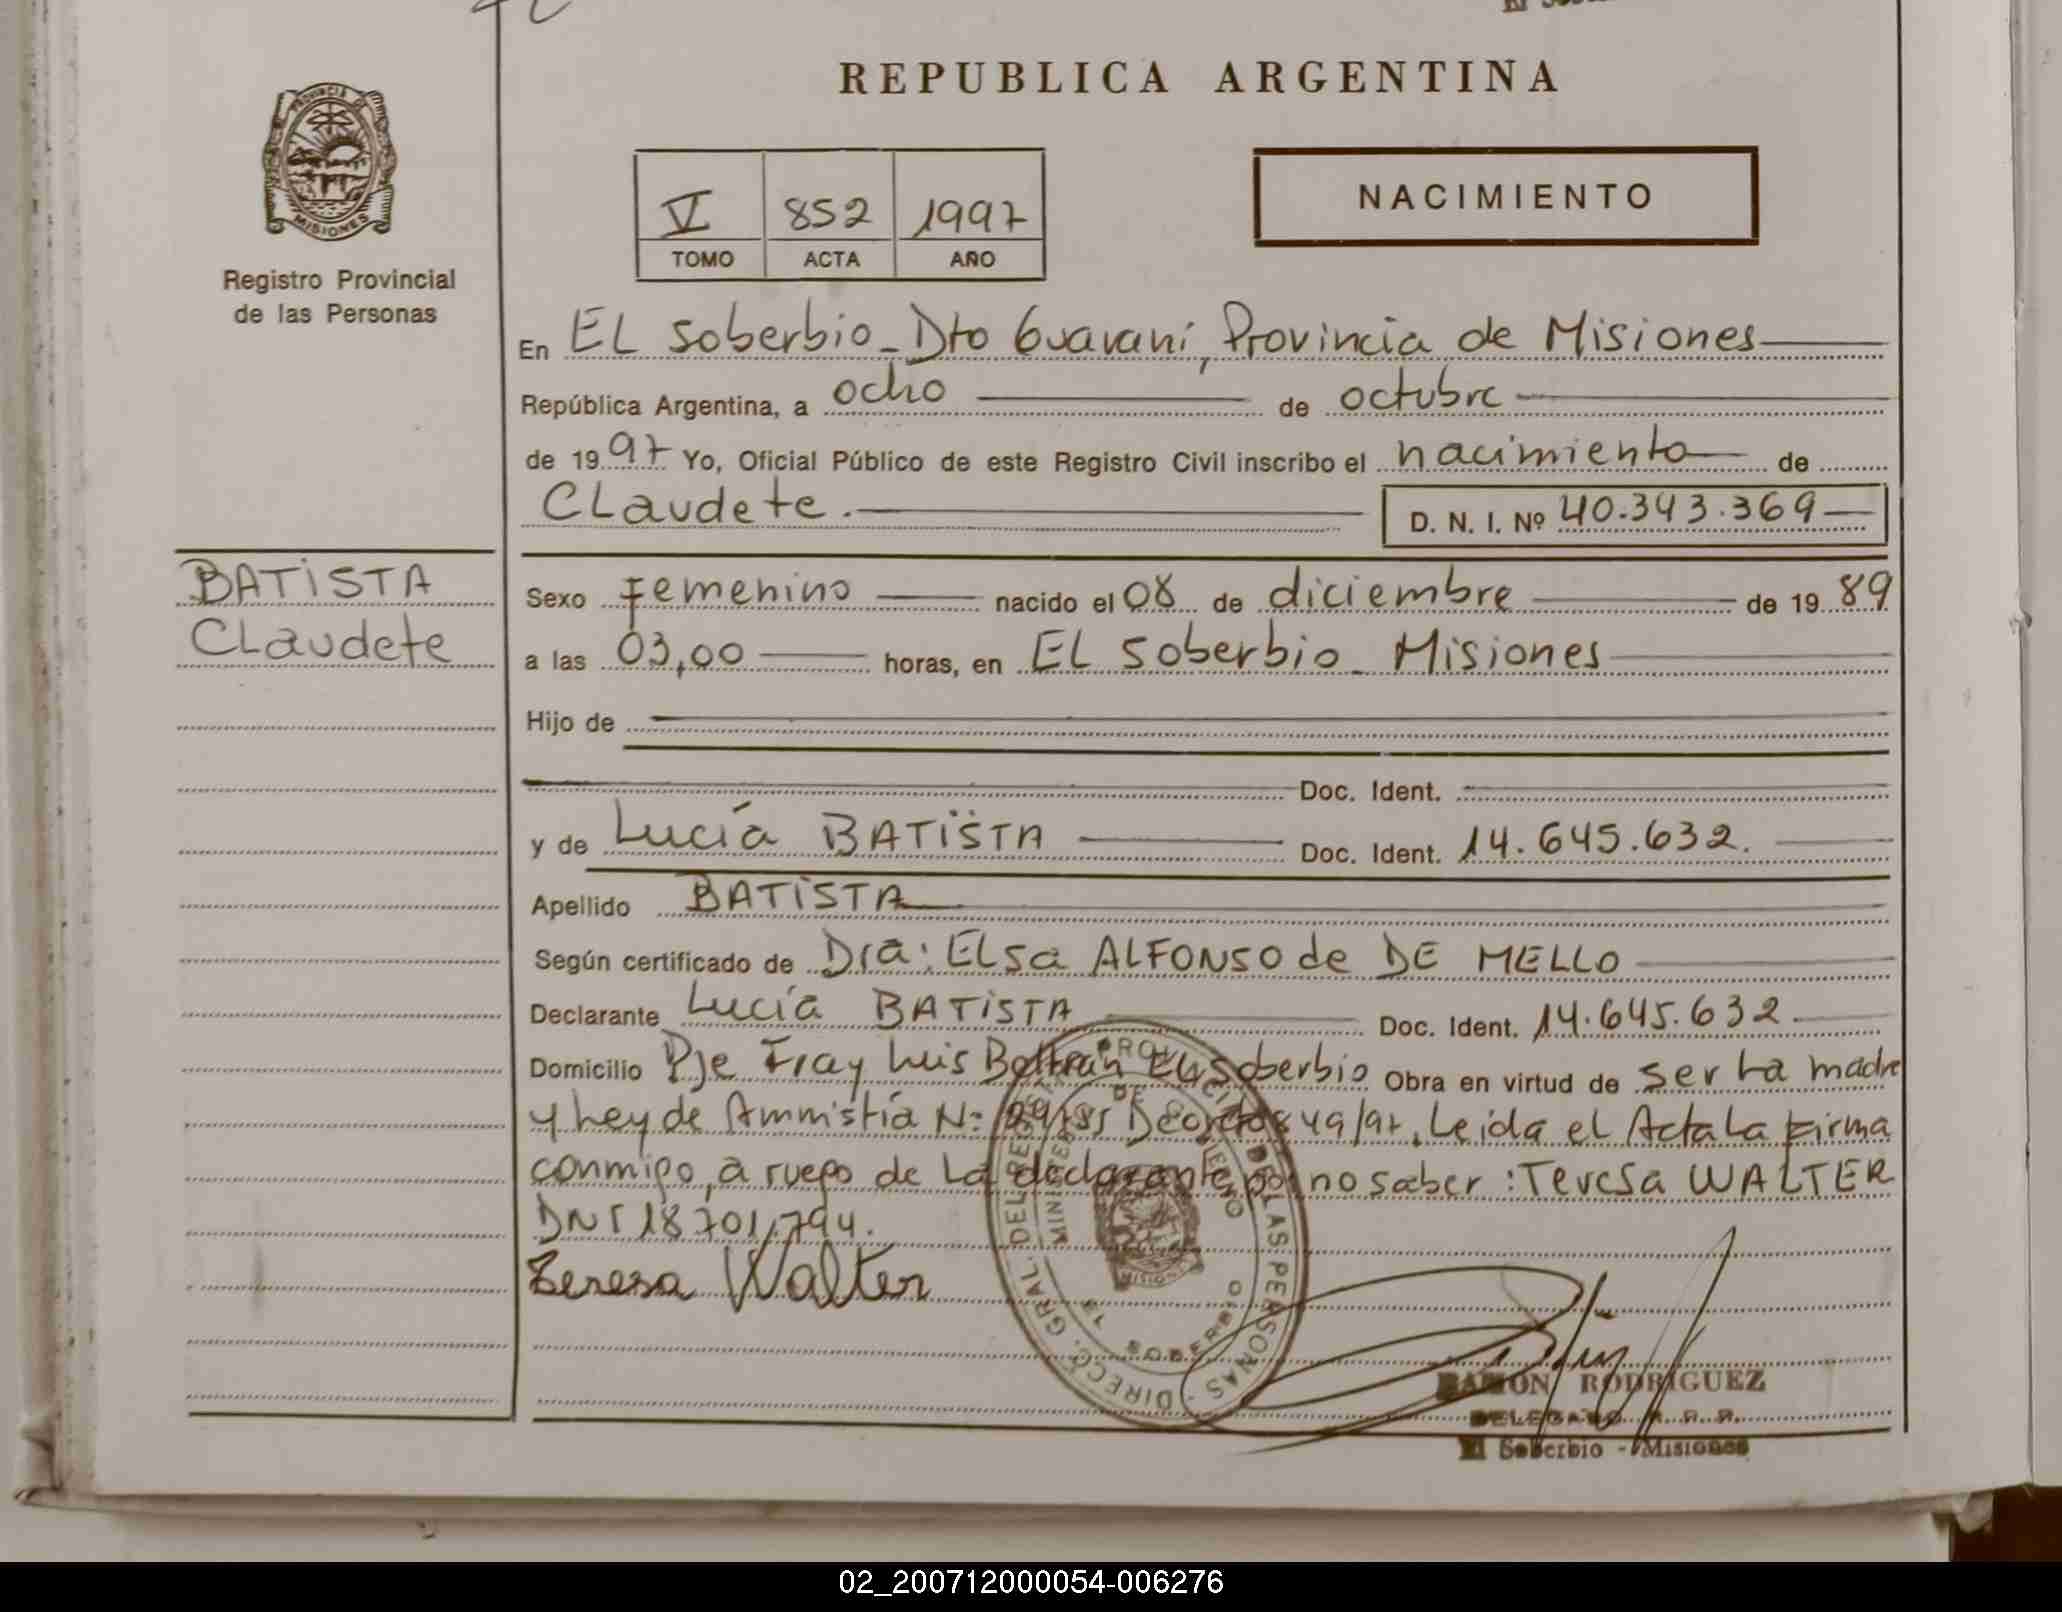 REPUBLICA ARGENTINA
PROVINCIA DE
MISIONES
Registro Provincial
de las Personas
V 852 1997
TOMO ACTA AÑO
NACIMIENTO
En EL Soberbio - Dto Guaraní, Provincia de Misiones
República Argentina, a ocho de octubre
de 1997 Yo, Oficial Público de este Registro Civil inscribo el nacimiento de
CLaudete. D. N. I. Nº 40.343.369
BATISTA
CLaudete
Sexo Femenino nacido el 08 de diciembre de 1989
a las 03,00 horas, en EL Soberbio - Misiones
Hijo de
Doc. Ident.
y de Lucía BATISTA Doc. Ident. 14.645.632.
Apellido BATISTA
Según certificado de Dra: ELsa ALFONSO de DE MELLO
Declarante Lucía BATISTA Doc. Ident. 14.645.632
Domicilio Pje Fray Luis Beltrán EL Soberbio Obra en virtud de ser La madre
y Ley de Ammistía N: Leída el Acta La firma
conmigo, a ruego de La declarante por no saber: Teresa WALTER
DNI 18701.794.
Teresa Walter
DIRECC. GRAL. DEL REGISTRO PROVINCIAL DE LAS PERSONAS
MINISTERIO DE GOBIERNO
MISIONES
EL SOBERBIO
RAMON RODRIGUEZ
DELEGADO R. P. P.
El Soberbio - Misiones
02_200712000054-006276